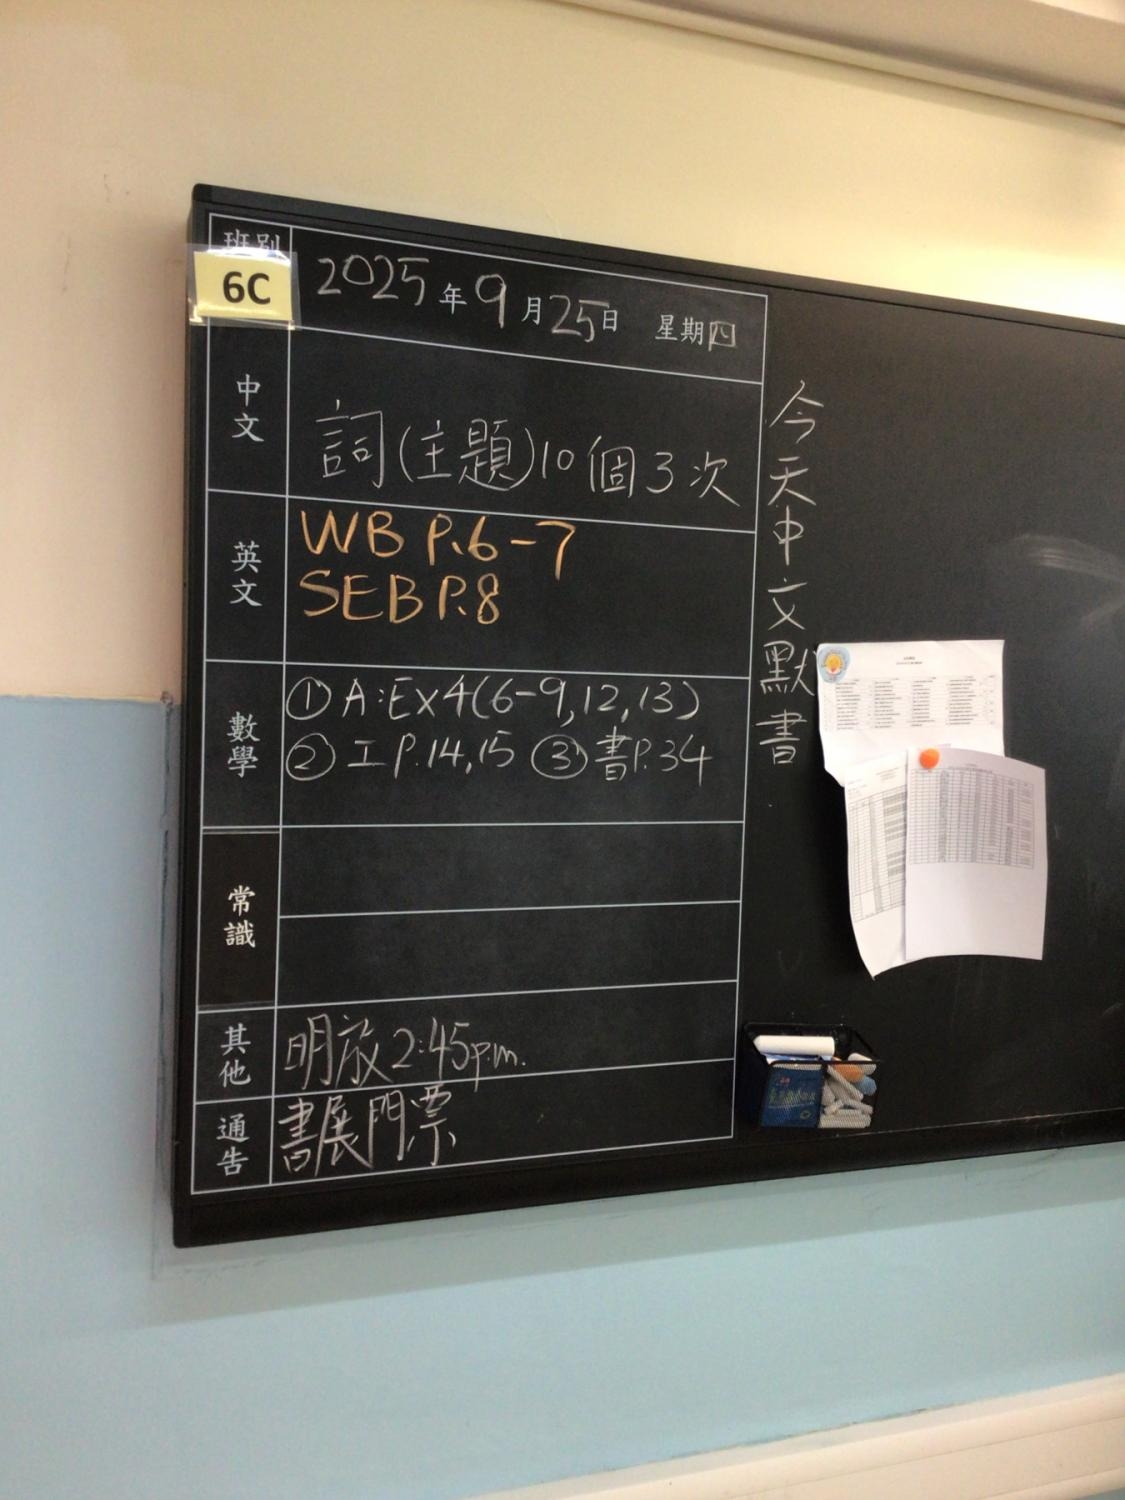 班別
6C
2025年9月25日 星期四
中文
詞(主題)10個3次
英文
WB P.6-7
SEB P.8
數學
① A:Ex4(6-9,12,13)
② 工P.14,15 ③ 書P.34
常識
其他
明放2:45p.m.
通告
書展門票
今天中文默書